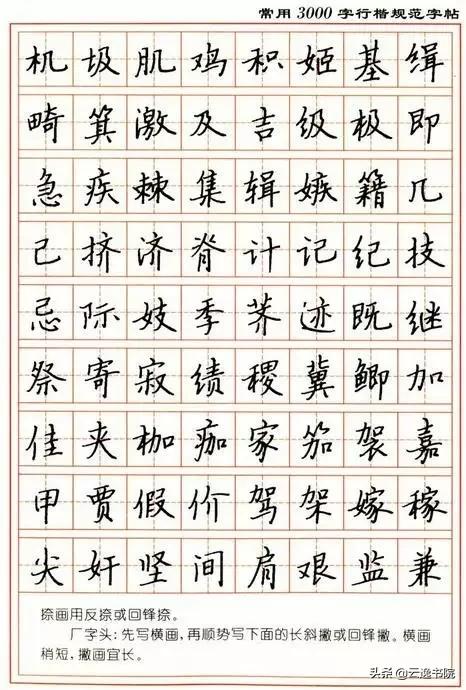 常用3000字行楷规范字帖
机圾肌鸡积姬基缉
畸箕激及吉级极即
急疾棘集辑嫉籍几
己挤济脊计记纪技
忌际妓季荠迹既继
祭寄寂绩稷冀鲫加
佳夹枷痂家笳袈嘉
甲贾假价驾架嫁稼
尖奸坚间肩艰监兼
捺画用反捺或回锋捺。
厂字头:先写横画,再顺势写下面的长斜撇或回锋撇。横画
稍短,撇画宜长。
头条@云逸书院